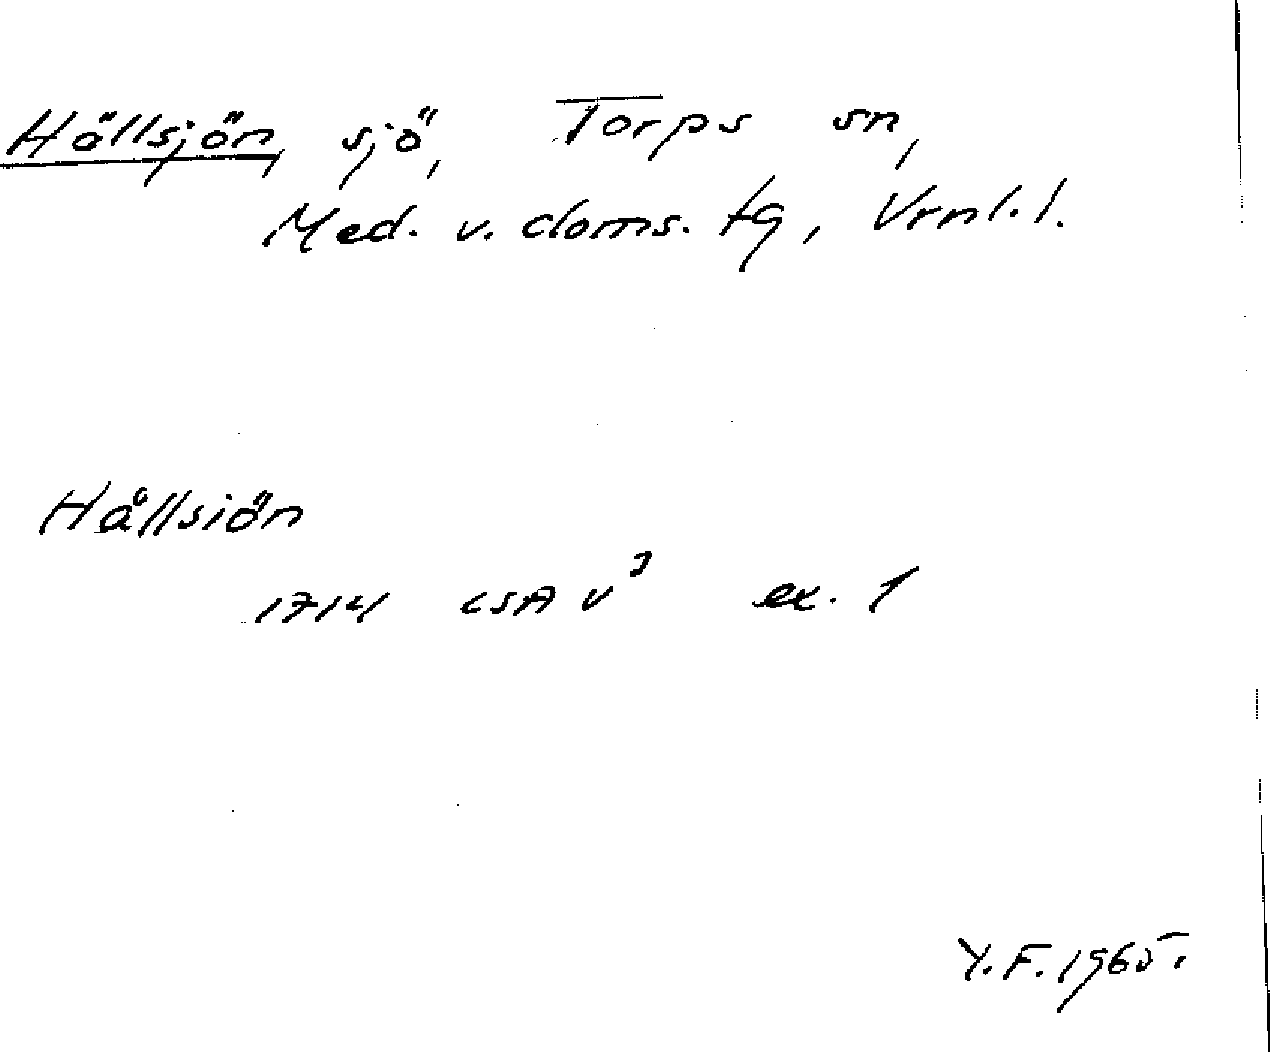 Hällsjön, sjö, Torps sn,
Med. v. doms. tg, Vrnl. l.
Hållsiön
1714 LSA V³ ex. 1
Y.F. 1965.